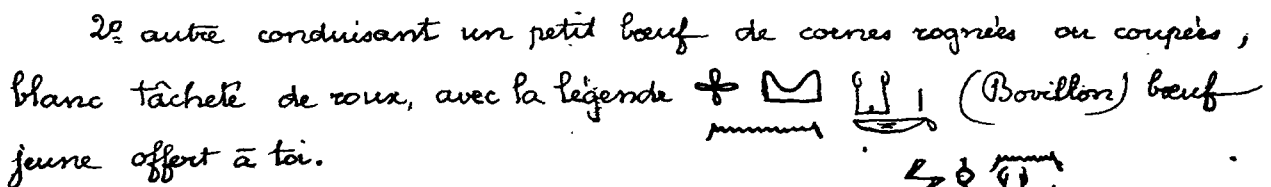 2º autre conduisant un petit bœuf de cornes rognées ou coupées,
blanc tâcheté de roux, avec la légende (Bovillon) bœuf
jeune offert à toi.